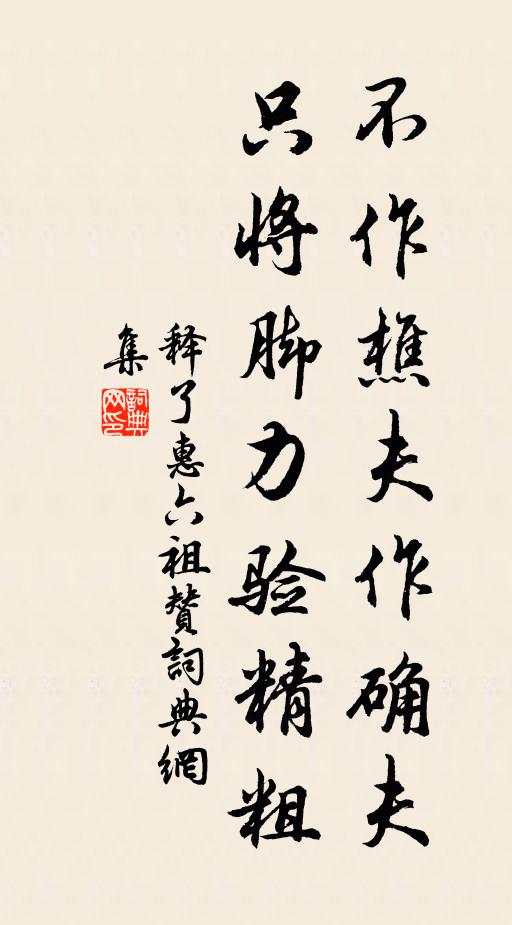 不作樵夫作确夫
只将脚力验精粗
释了惠六祖赞詞典網
集
詞典
网印